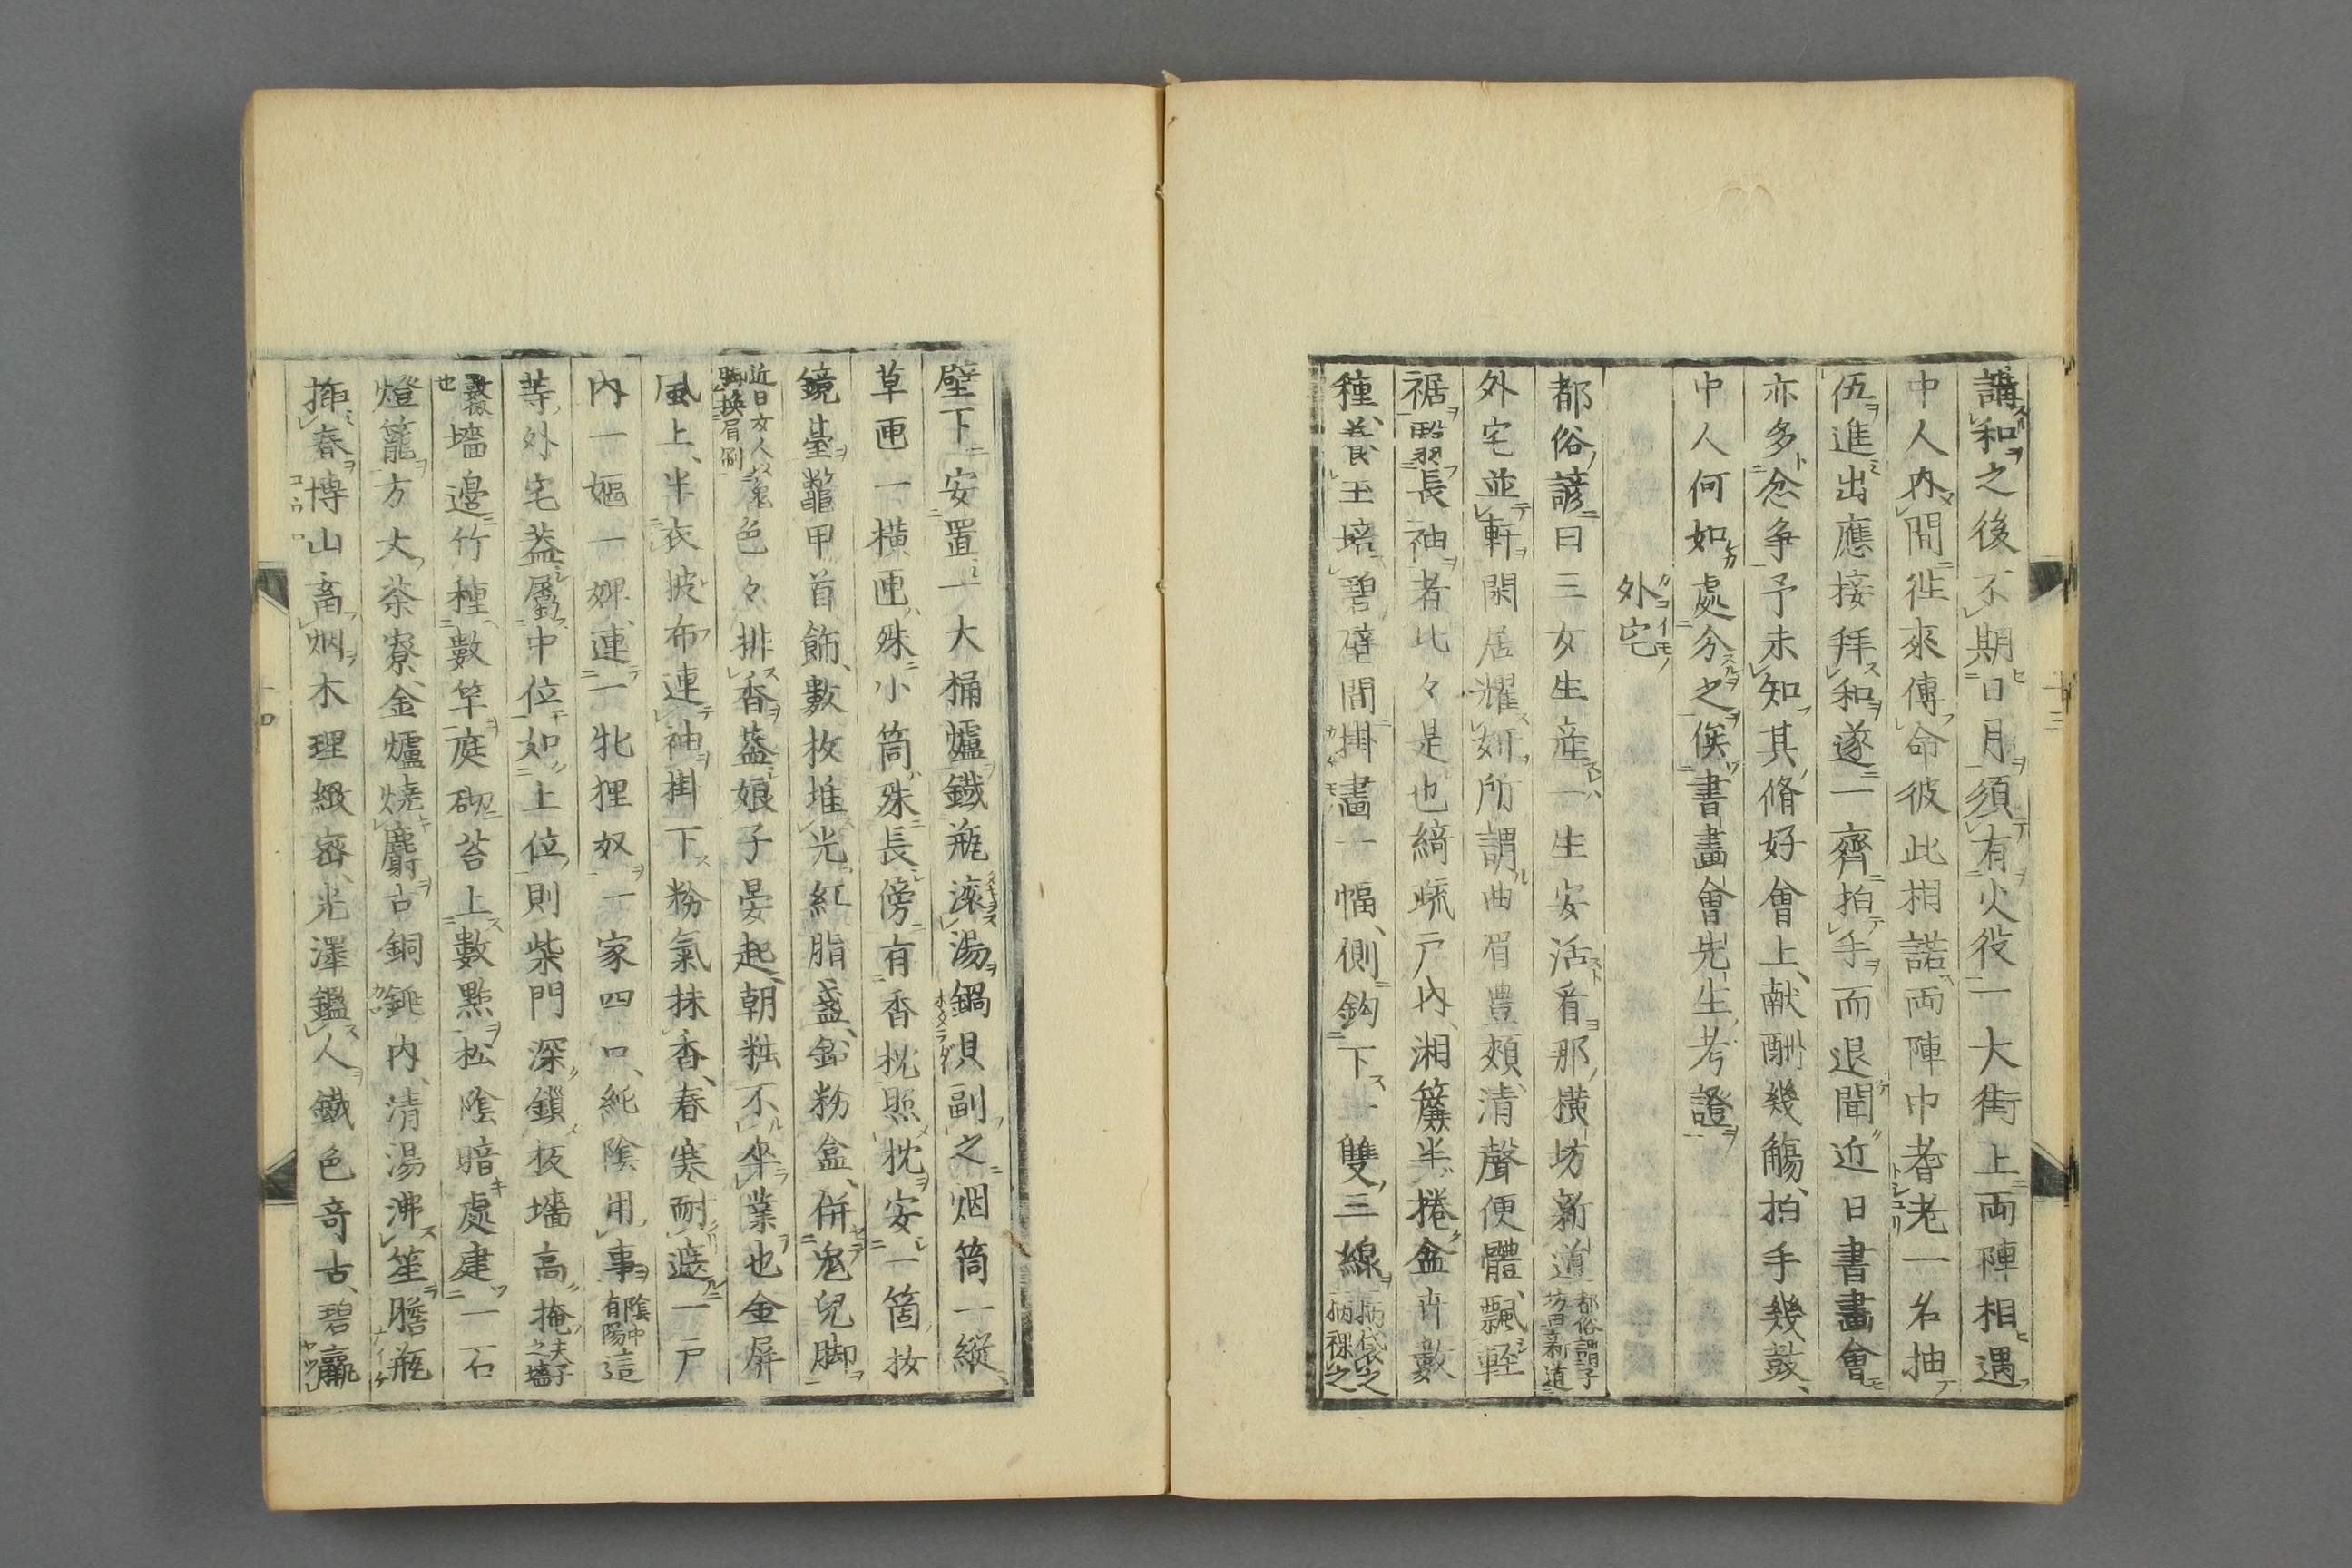 講和之後不期日月須有火役一大街上両陣相遇
中人内間徃來傳命彼此相諾両陣中耆老一名抽
伍進出應接拜和遂一齊拍手而退聞近日書畫會
亦多忿争予未知其脩好會上献酬幾觴拍手幾鼓
中人何如處分之俟書畫會先生考證
外宅
都俗諺曰三女生産一生安活看那横坊新道都俗謂子坊曰新道
外宅並軒閑居燿妍所謂曲眉豊頬清聲便體飄軽
裾翳長袖者比々是也綺疏戸内湘簾半捲盆卉數
種養玉培碧壁間掛畵一幅側鈎下一雙三線一柄袋之一柄裸之
壁下安置一大桶爐鐵瓶滚湯鍋浿副之烟筒一縦
草匣一横匣殊小筒殊長傍有香枕照枕安一箇妝
鏡臺鼈甲首飾數枚堆光紅脂盞鉛粉盒併鬼兒脚
近日女人以兔脚換眉刷色々排香葢娘子晏起朝粧不卒業也金屏
風上半衣披布連袖掛下粉氣抹香春寒耐遮一戸
内一嫗一婢連一牝狸奴一家四口純陰用事陰中有陽這
等外宅葢屬中位如上位則柴門深鎖板墻高掩夫子之墻
也墻邊竹種數竿庭砌苔上數點松陰暗處建一石
燈籠方大茶寮金爐焼麝古銅銚内清湯沸笙膽瓶
挿春博山畜烟木理緻密光澤鑑人鐵色奇古碧